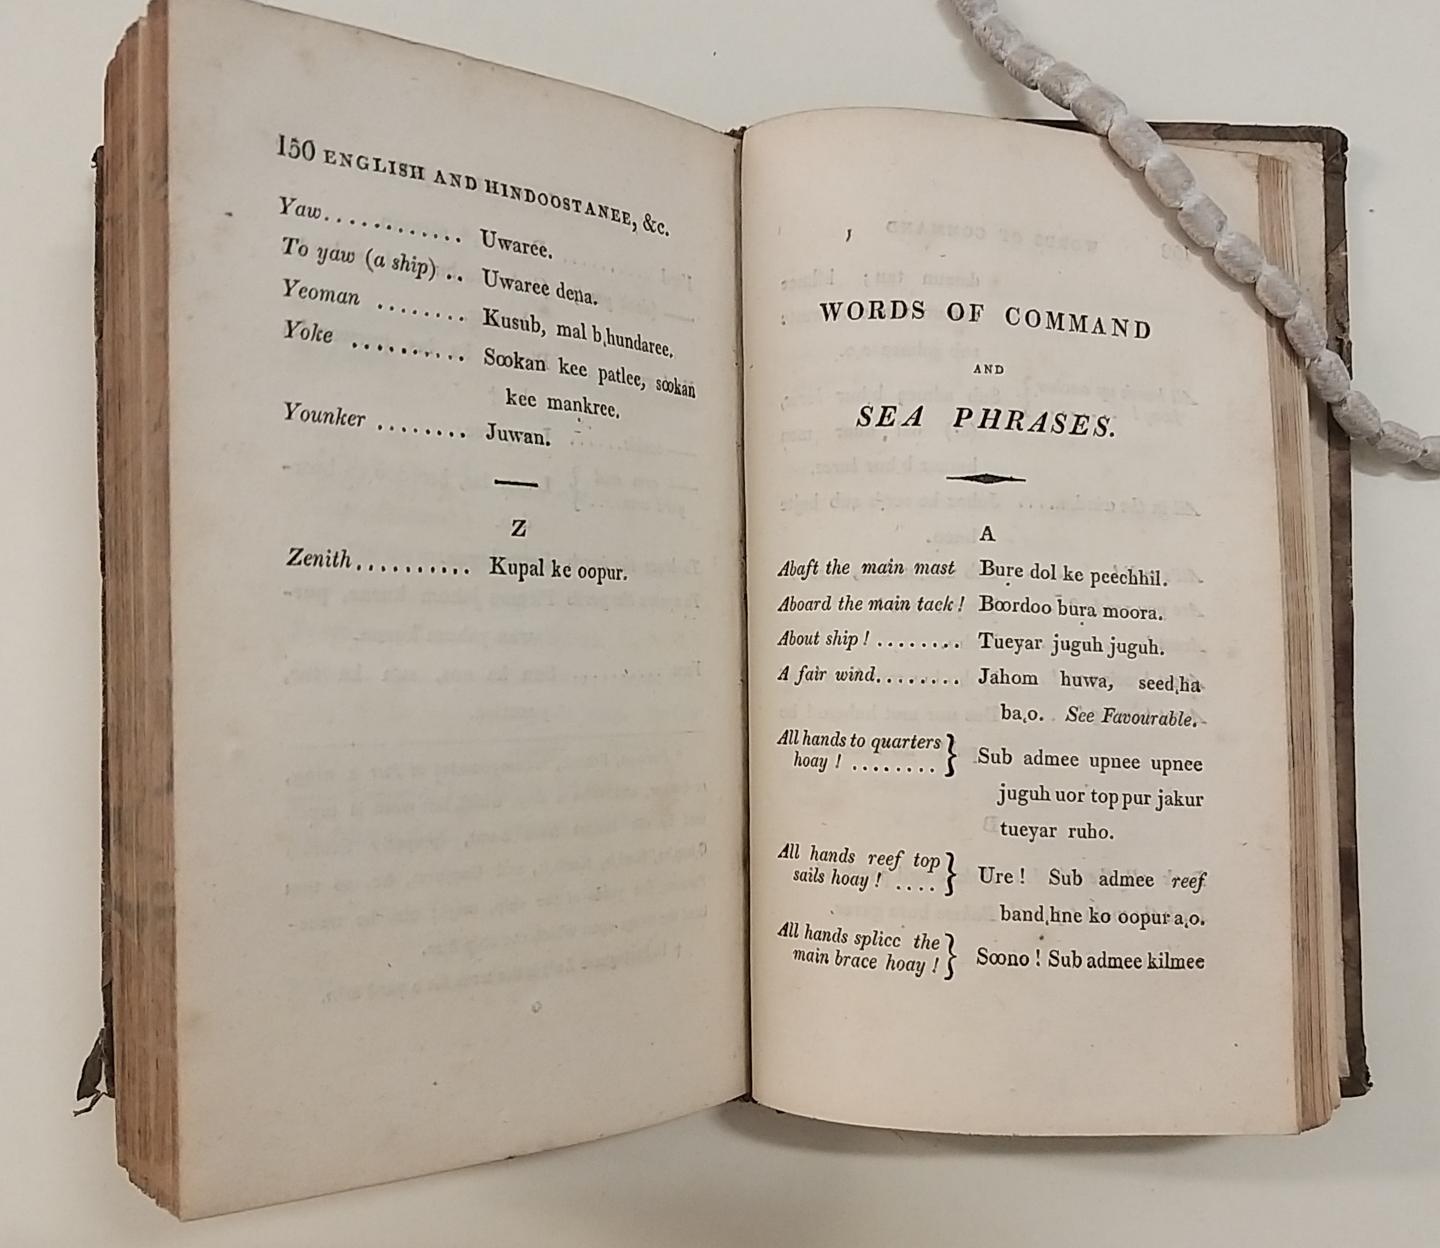 150 ENGLISH AND HINDOOSTANEE, &c.
Yaw............ Uwaree.
To yaw (a ship) .. Uwaree dena.
Yeoman ........ Kusub, mal b,hundaree.
Yoke .......... Sookan kee patlee, sookan
kee mankree.
Younker ........ Juwan.
Z
Zenith.......... Kupal ke oopur.
WORDS OF COMMAND
AND
SEA PHRASES.
A
Abaft the main mast Bure dol ke peechhil.
Aboard the main tack! Boordoo bura moora.
About ship! ........ Tueyar juguh juguh.
A fair wind........ Jahom huwa, seed,ha
ba,o. See Favourable.
All hands to quarters
hoay! ........ } Sub admee upnee upnee
juguh uor top pur jakur
tueyar ruho.
All hands reef top
sails hoay! .... } Ure! Sub admee reef
band,hne ko oopur a,o.
All hands splice the
main brace hoay! } Soono! Sub admee kilmee